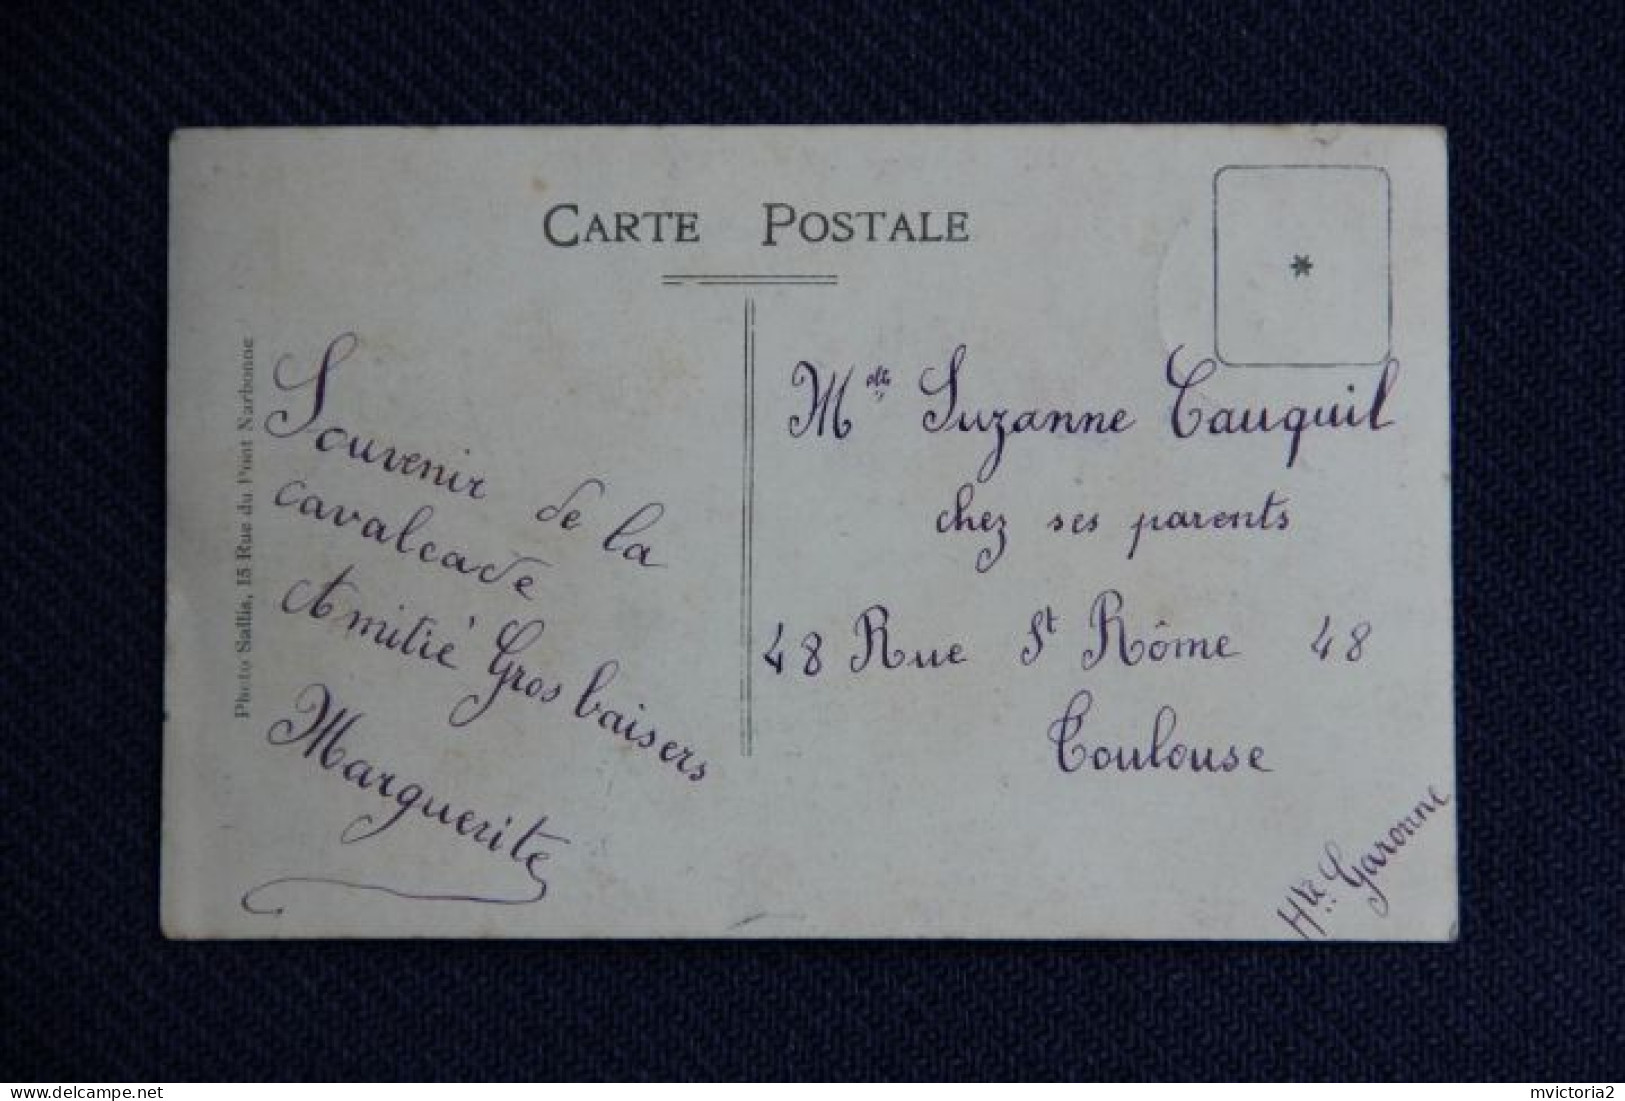 CARTE POSTALE
*
Photo Sallis, 15 Rue du Pont Narbonne
Souvenir de la
cavalcade
Amitié Gros baisers
Marguerite
Mlle Suzanne Tauquil
chez ses parents
48 Rue St Rôme 48
Toulouse
Hte Garonne
mvictoria2